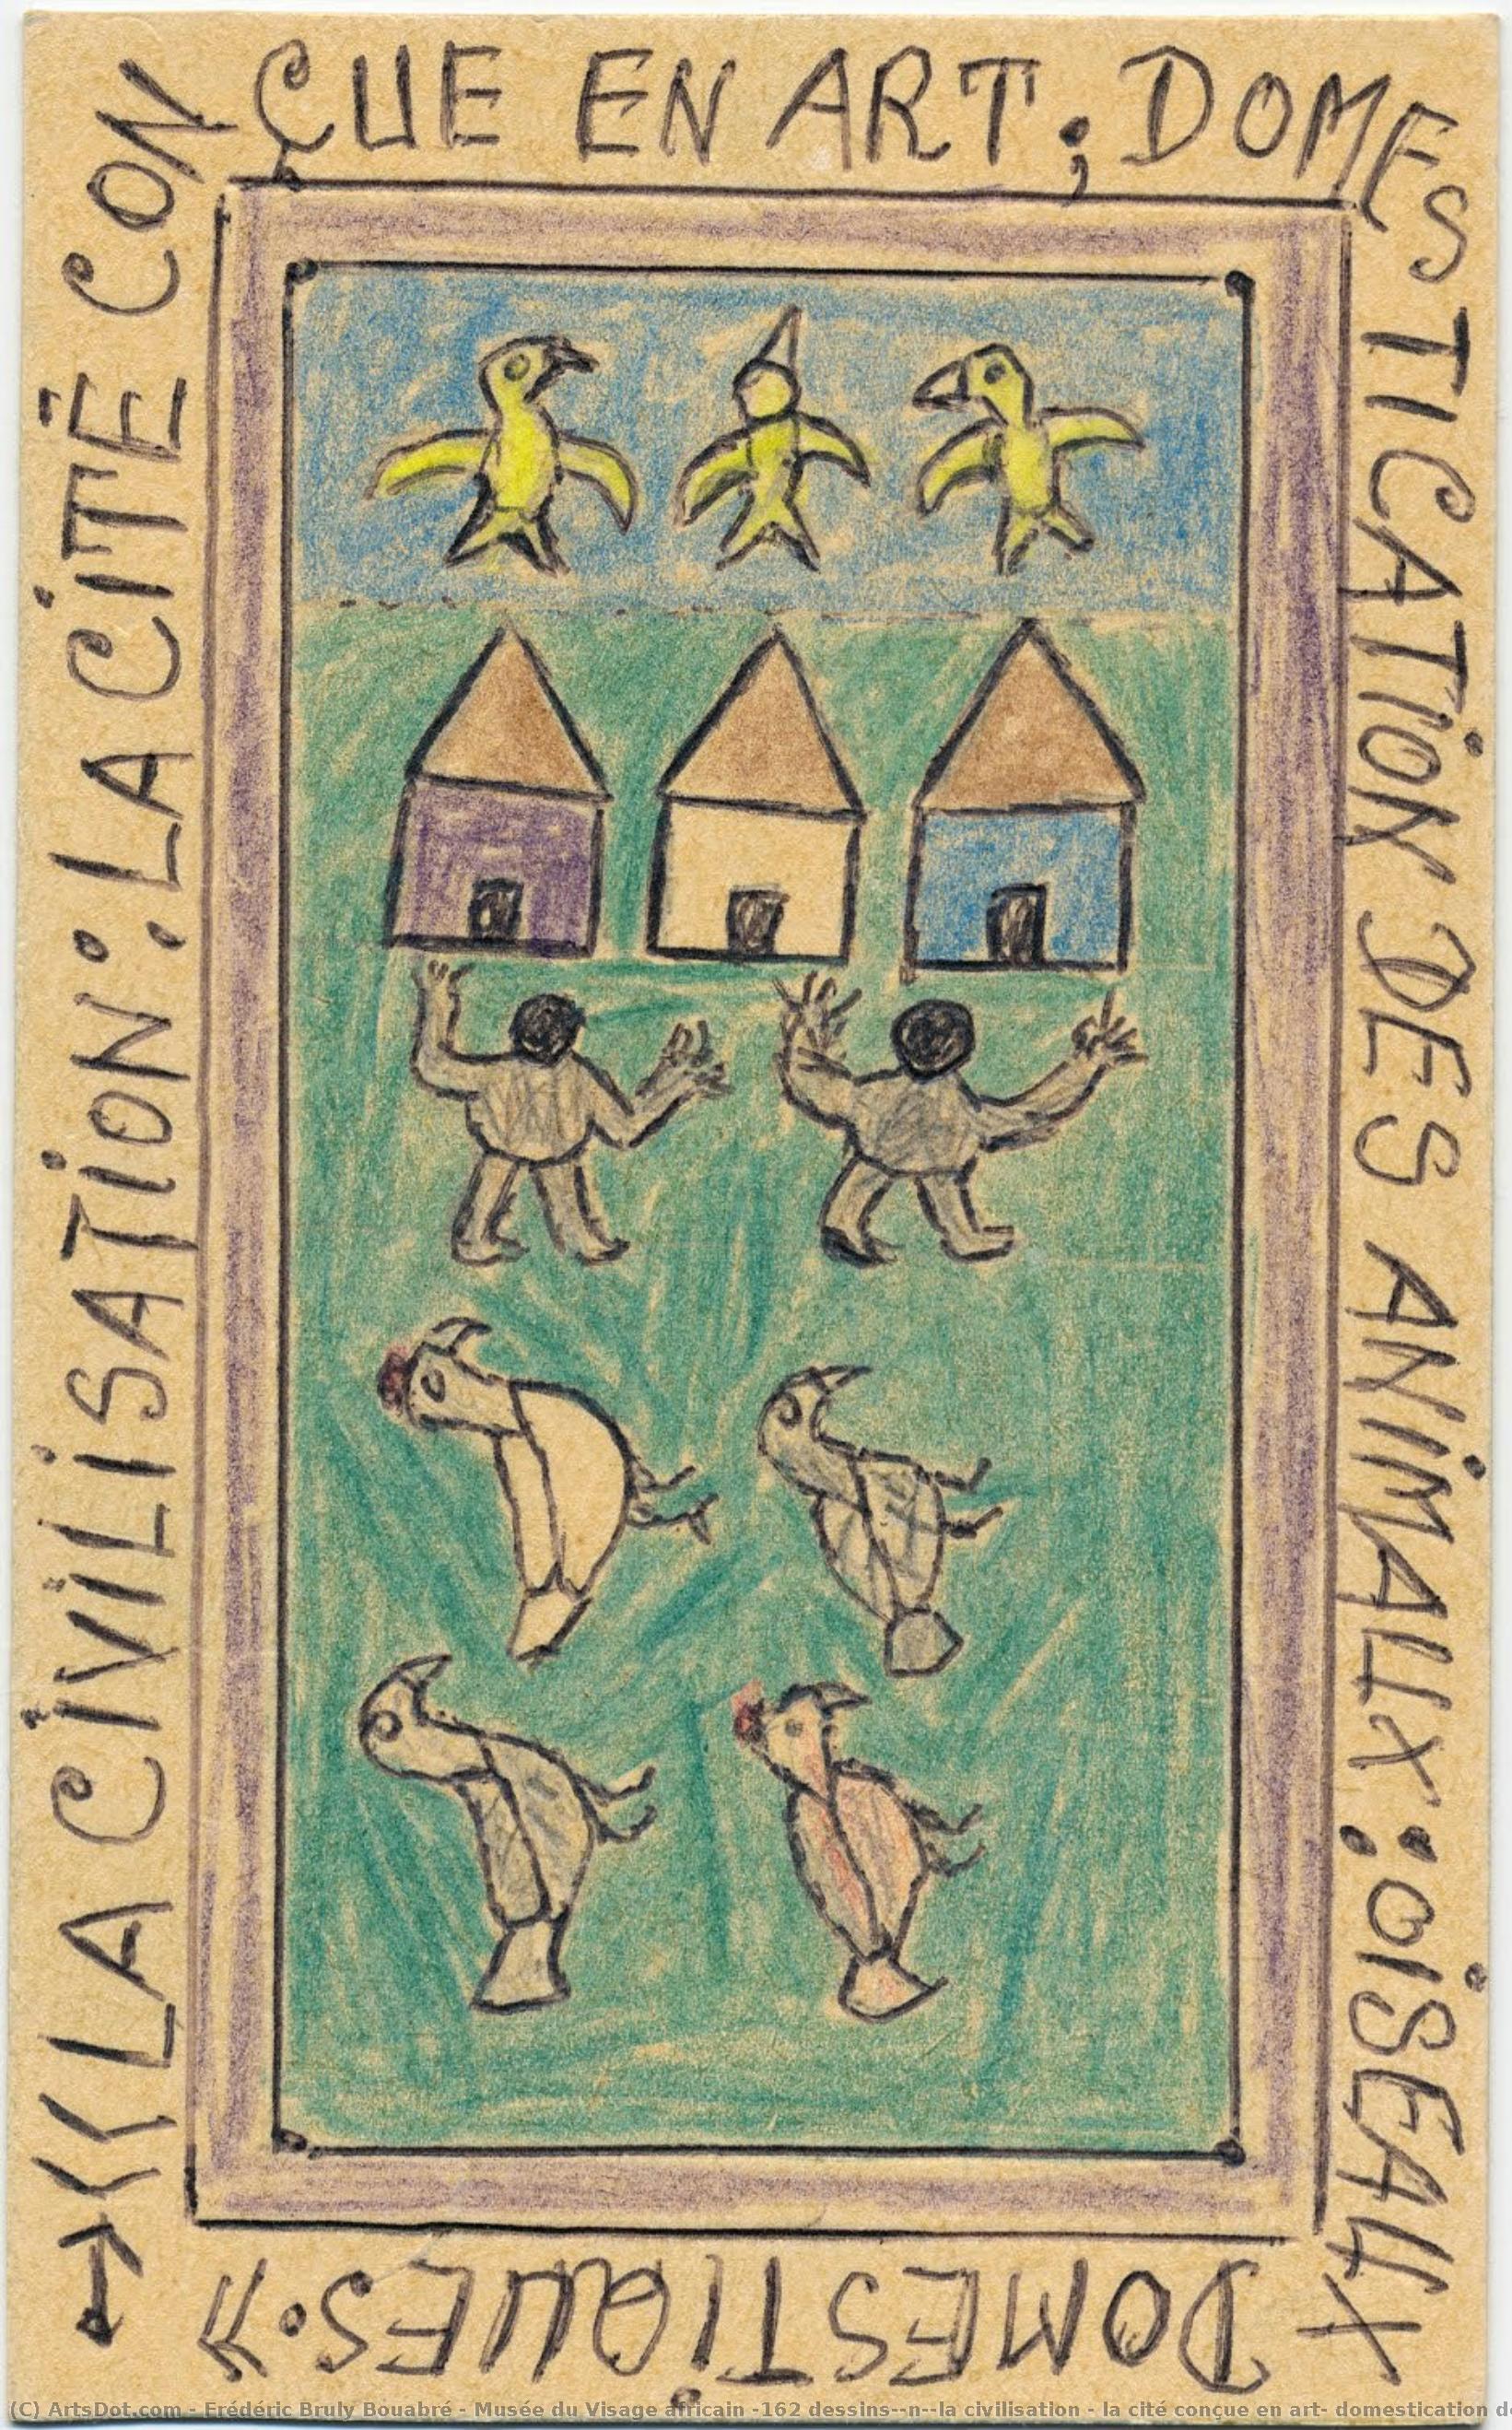 <<LA CIVILISATION : LA CITÉ CON
ÇUE EN ART ; DOMES
TICATION DES ANIMAUX : OISEAUX
DOMESTIQUES.>>
(C) ArtsDot.com - Frédéric Bruly Bouabré - Musée du Visage africain -162 dessins--n--la civilisation - la cité conçue en art- domestication d